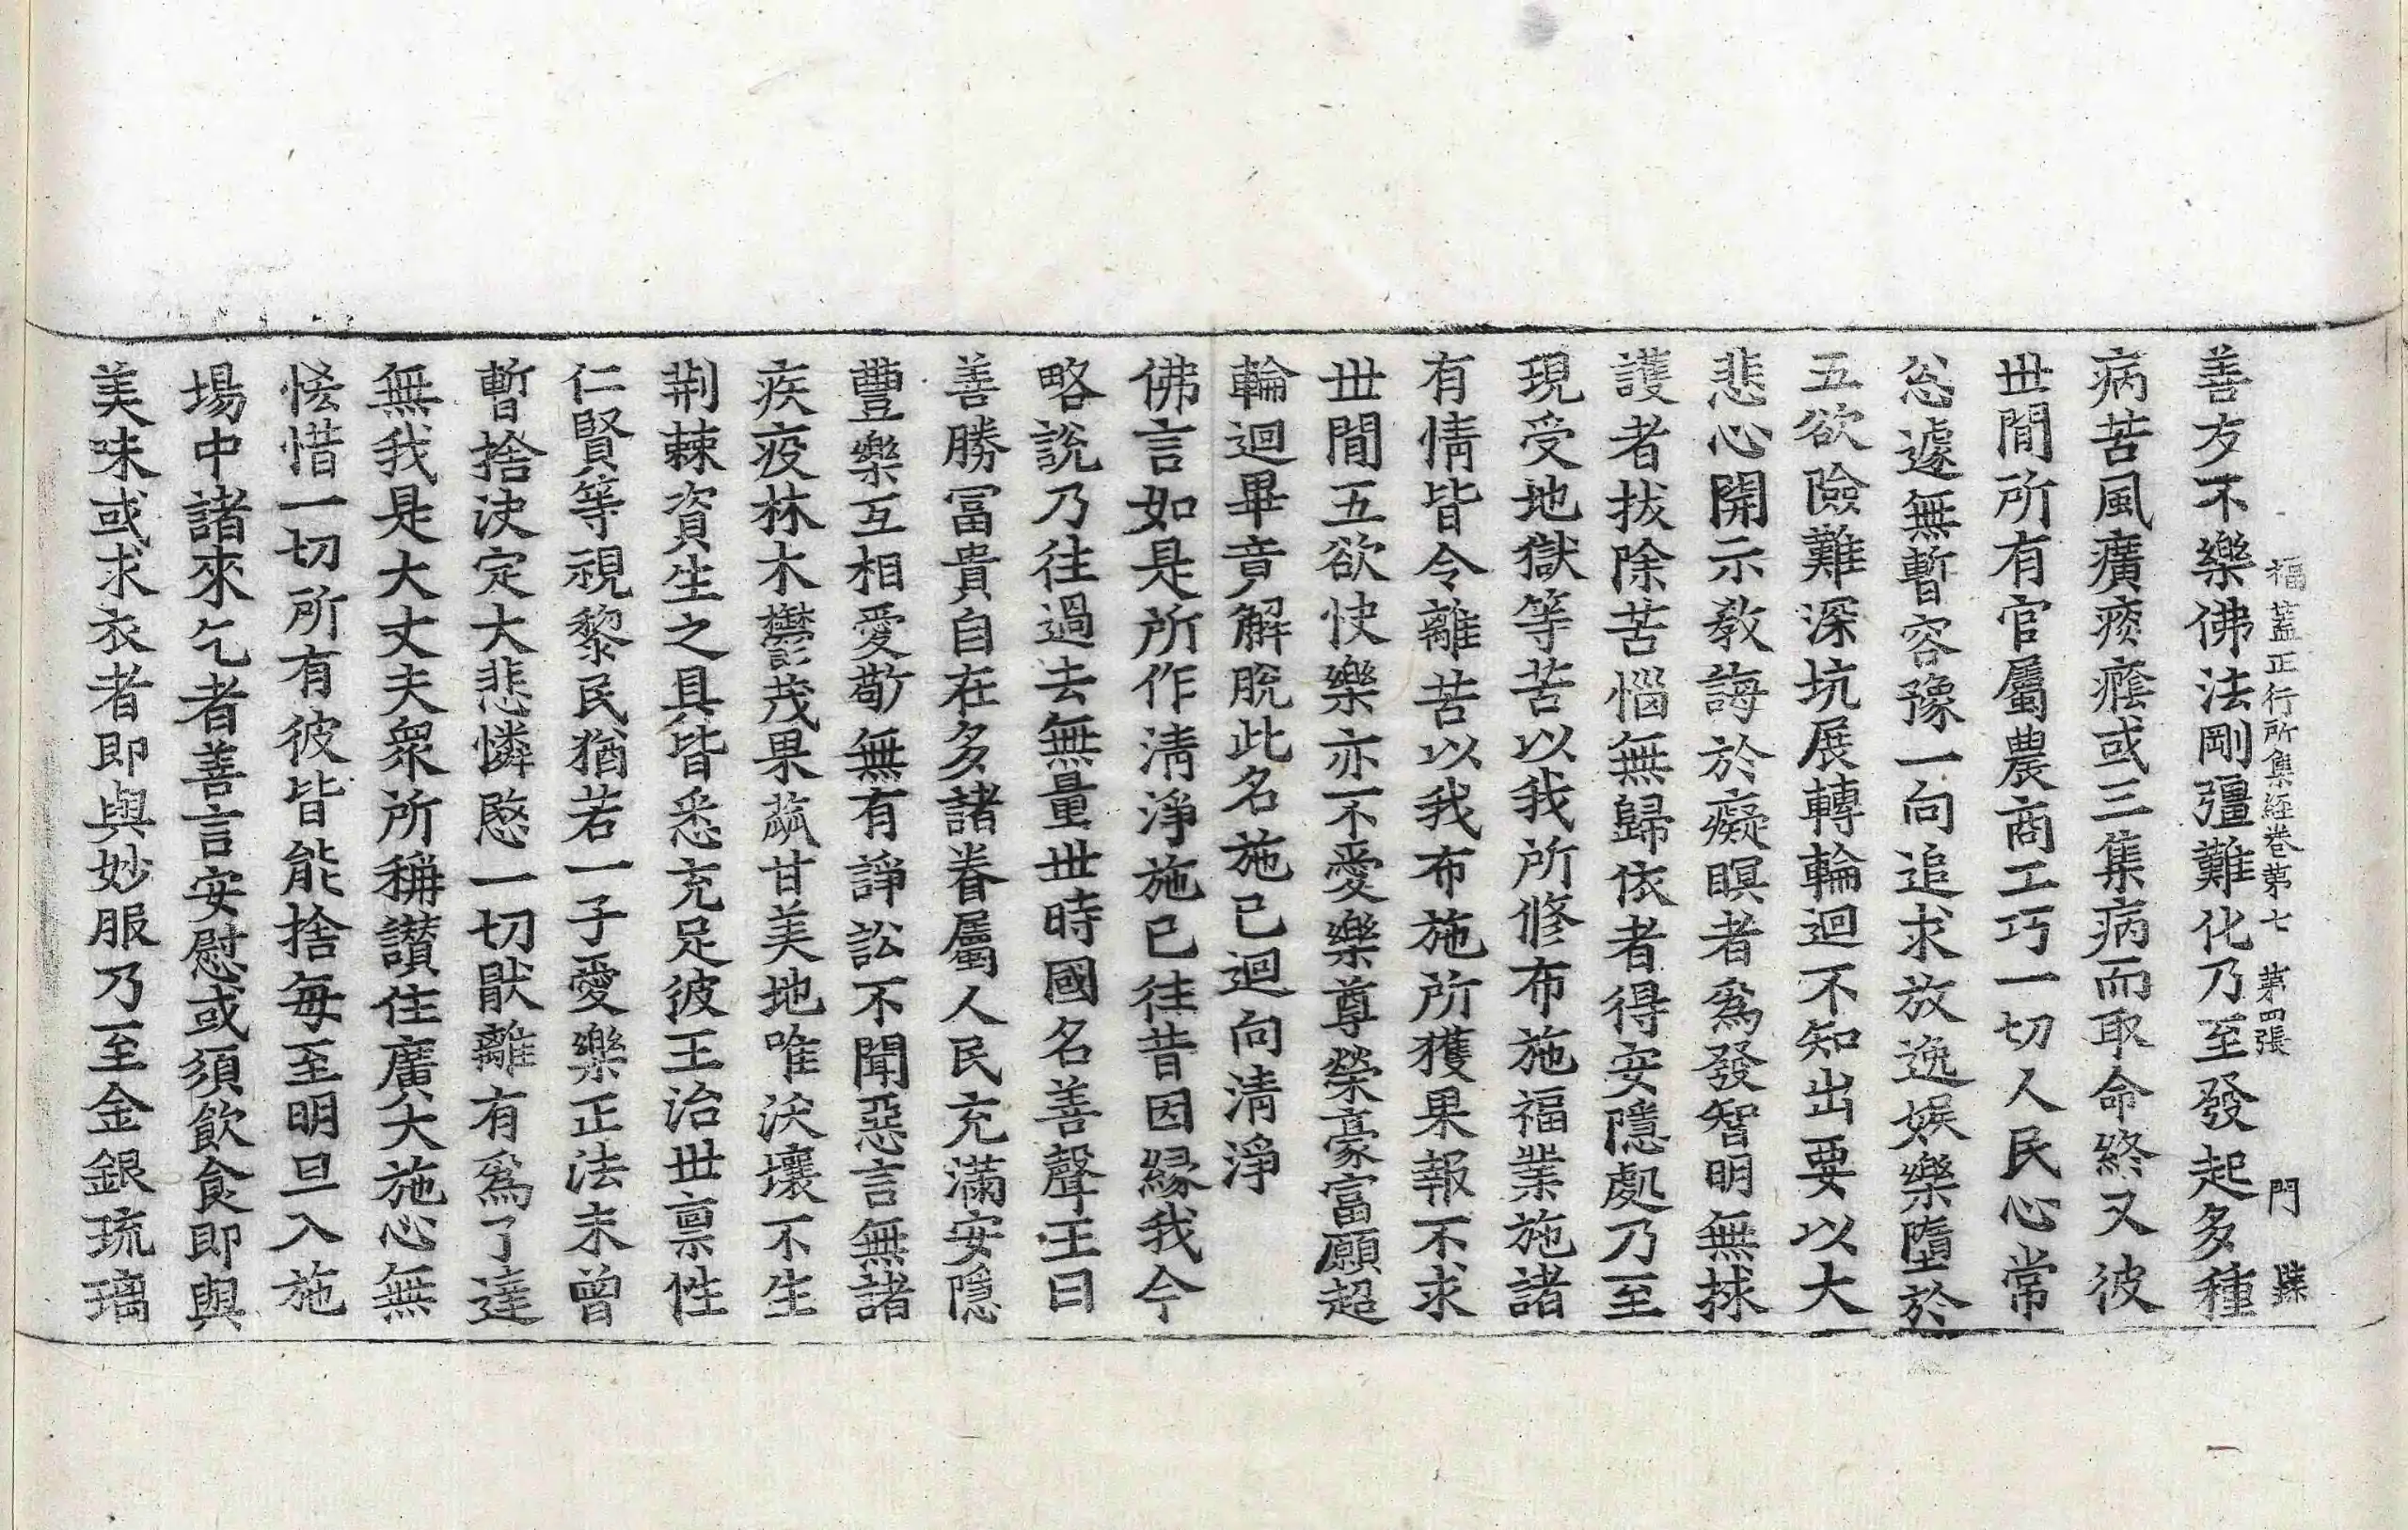 福蓋正行所集經卷第七　第四張　門
善友不樂佛法剛彊難化乃至發起多種
病苦風癀痰癊或三集病而取命終又彼
世間所有官屬農商工巧一切人民心常
忩遽無暫容豫一向追求放逸娛樂墮於
五欲險難深坑展轉輪迴不知出要以大
悲心開示教誨於癡瞑者爲發智明無捄
護者拔除苦惱無歸依者得安隱處乃至
現受地獄等苦以我所修布施福業施諸
有情皆令離苦以我布施所獲果報不求
世間五欲快樂亦不愛樂尊榮豪富願超
輪迴畢竟解脫此名施已迴向清淨
佛言如是所作清淨施已往昔因緣我今
略說乃往過去無量世時國名善聲王曰
善勝冨貴自在多諸眷屬人民充滿安隱
豐樂互相愛敬無有諍訟不聞惡言無諸
疾疫林木鬱茂果蓏甘美地唯沃壤不生
荆棘資生之具皆悉充足彼王治世禀性
仁賢等視黎民猶若一子愛樂正法未曾
暫捨決定大悲憐愍一切猒離有爲了達
無我是大丈夫衆所稱讃住廣大施心無
恡惜一切所有彼皆能捨每至明旦入施
場中諸來乞者善言安慰或須飲食即與
美味或求衣者即與妙服乃至金銀琉璃